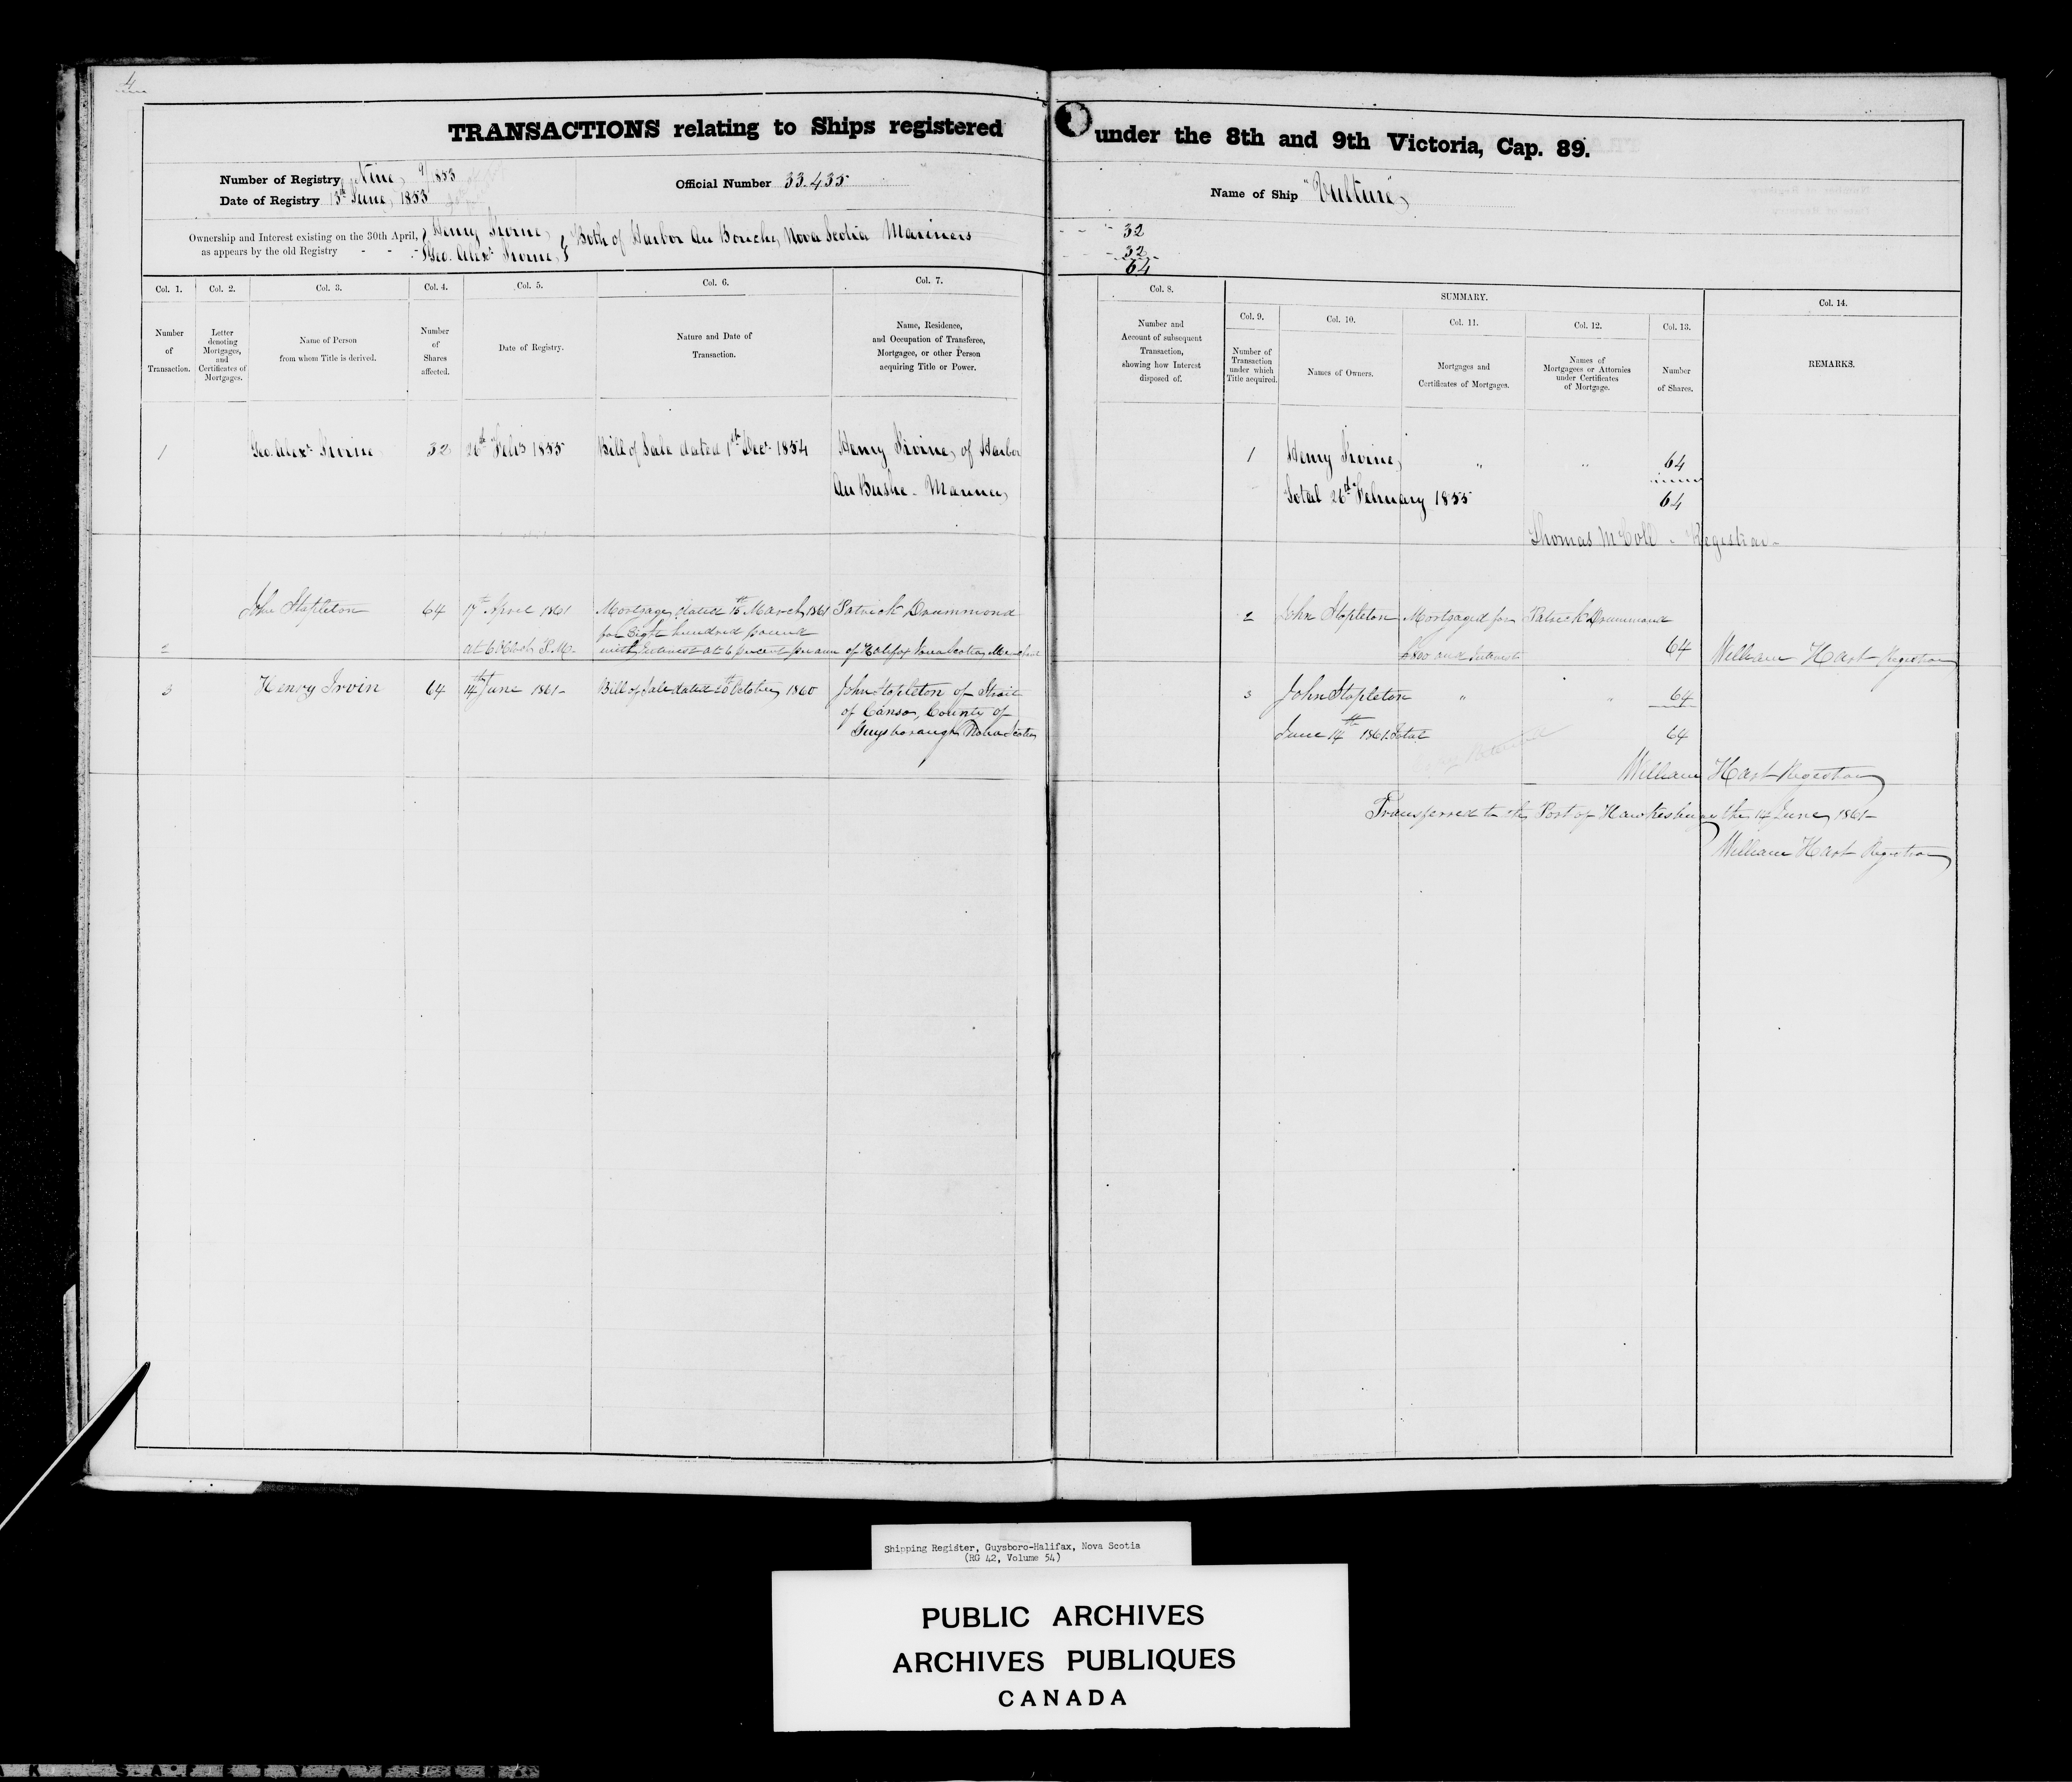 4
TRANSACTIONS relating to Ships registered under the 8th and 9th Victoria, Cap. 89.
Number of Registry Nine, 9/1853
Date of Registry 13th June, 1853
Official Number 33.435
Name of Ship "Vulture"
Ownership and Interest existing on the 30th April, as appears by the old Registry
Henry Irvine,
Geo. Alexr Irvine,
Both of Harbor Au Bouche, Nova Scotia Mariners
32
32
64
Col. 1. Number of Transaction.
Col. 2. Letter denoting Mortgages, and Certificates of Mortgages.
Col. 3. Name of Person from whom Title is derived.
Col. 4. Number of Shares affected.
Col. 5. Date of Registry.
Col. 6. Nature and Date of Transaction.
Col. 7. Name, Residence, and Occupation of Transferee, Mortgagee, or other Person acquiring Title or Power.
Col. 8. Number and Account of subsequent Transaction, showing how Interest disposed of.
SUMMARY.
Col. 9. Number of Transaction under which Title acquired.
Col. 10. Names of Owners.
Col. 11. Mortgages and Certificates of Mortgages.
Col. 12. Names of Mortgagees or Attornies under Certificates of Mortgage.
Col. 13. Number of Shares.
Col. 14. REMARKS.
1 Geo. Alexr Irvine 32 26th Feby 1855 Bill of Sale dated 1st Decr 1854 Henry Irvine, of Harbor
Au Bushe - Mariner,
1 Henry Irvine, " " 64
Total 26th February 1855 64
Registrar
John Stapleton 64 17th April 1861 Mortgage dated March 1861 Patrick Drummond
for Eight hundred pound
2 at 6 OClock P.M. with Interest at 6 percent per ann of Halifax Nova Scotia Merchant
2 John Stapleton Mortgaged for Patrick Drummond
£800 and Interest 64 William Hart Registrar
3 Henry Irvin 64 14th June 1861 Bill of Sale dated October 1860 John Stapleton of Strait
of Canso, County of
Guysborough Nova Scotia
3 John Stapleton " " 64
June 14th 1861 Total 64
William Hart Registrar
Transferred to the Port of Hawkesbury the 14 June, 1861
William Hart Registrar
Shipping Register, Guysboro-Halifax, Nova Scotia
(RG 42, Volume 54)
PUBLIC ARCHIVES
ARCHIVES PUBLIQUES
CANADA